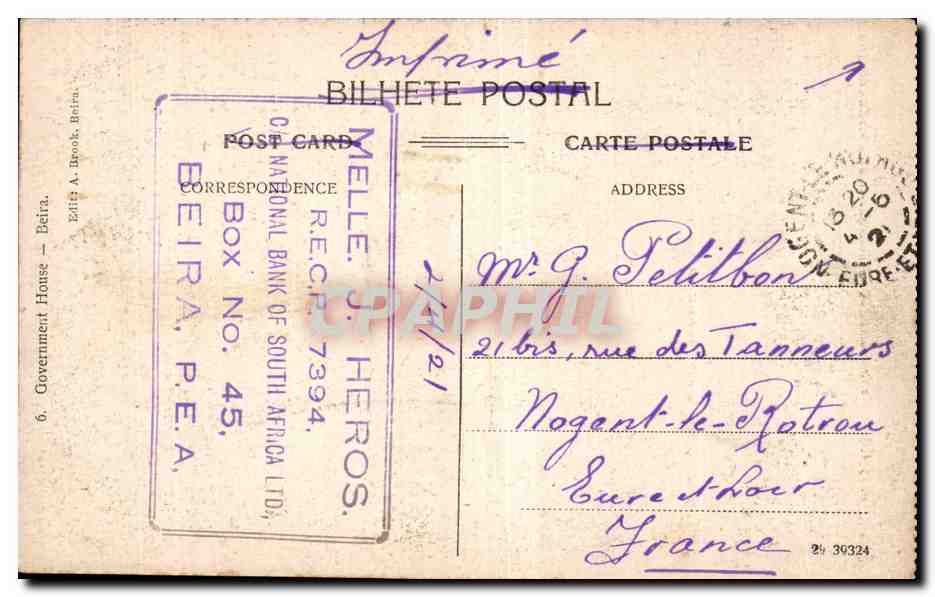 Imprimé
BILHETE POSTAL
POST CARD
CARTE POSTALE
CORRESPONDENCE
ADDRESS
6. Government House – Beira.
Edit: A. Brook, Beira.
MELLE. J. HEROS.
R.E.C.P. 7394,
C/o NATIONAL BANK OF SOUTH AFRICA LTD,
BOX NO. 45,
BEIRA, P.E.A.
2/4/21
Mr G. Petitbon
21 bis, rue des Tanneurs
Nogent-le-Rotrou
Eure et Loir
France
29 39324
NOGENT-LE-ROTROU
EURE-ET
CPAPHIL